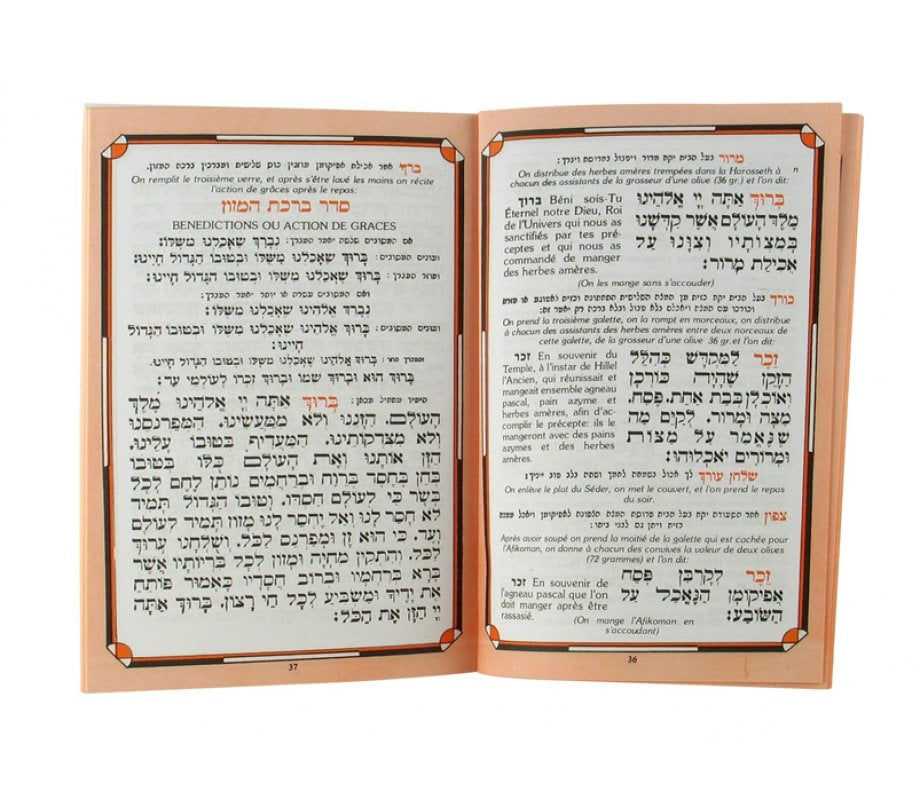 מרור בעל הבית יקח מרור ויטבול בחרוסת ויברך:
On distribue des herbes amères trempées dans la Harosseth à
chacun des assistants de la grosseur d'une olive (36 gr.) et l'on dit:
בָּרוּךְ אַתָּה יְיָ אֱלֹהֵינוּ
מֶלֶךְ הָעוֹלָם אֲשֶׁר קִדְּשָׁנוּ
בְּמִצְוֹתָיו וְצִוָּנוּ עַל
אֲכִילַת מָרוֹר:
ברוך Béni sois-Tu
Éternel notre Dieu, Roi
de l'Univers qui nous as
sanctifiés par tes pré-
ceptes et qui nous as
commandé de manger
des herbes amères.
(On les mange sans s'accouder)
כורך בעל הבית יקח כזית מן המצה השלישית
On prend la troisième galette, on la rompt en morceaux, on distribue
à chacun des assistants des herbes amères entre deux morceaux de
cette galette, de la grosseur d'une olive 36 gr.et l'on dit:
זֵכֶר לַמִּקְדָּשׁ כְּהִלֵּל
הַזָּקֵן שֶׁהָיָה כּוֹרְכָן
וְאוֹכְלָן בְּבַת אַחַת. פֶּסַח.
מַצָּה וּמָרוֹר. לְקַיֵּם מַה
שֶּׁנֶּאֱמַר עַל מַצּוֹת
וּמְרוֹרִים יֹאכְלוּהוּ:
זכר En souvenir du
Temple, à l'instar de Hillel
l'Ancien, qui réunissait et
mangeait ensemble agneau
pascal, pain azyme et
herbes amères, afin d'ac-
complir le précepte: ils le
mangeront avec des pains
azymes et des herbes
amères.
שלחן עורך
On enlève le plat du Séder, on met le couvert, et l'on prend le repas
du soir.
צפון אחר הסעודה יקח בעל הבית
Après avoir soupé on prend la moitié de la galette qui est cachée pour
l'Afikoman, on donne à chacun des convives la valeur de deux olives
(72 grammes) et l'on dit:
זֵכֶר לְקָרְבַּן פֶּסַח
אֲפִיקוֹמָן הַנֶּאֱכָל עַל
הַשּׂוֹבַע:
זכר En souvenir de
l'agneau pascal que l'on
doit manger après être
rassasié.
(On mange l'Afikoman en
s'accoudant)
36
ברך אחר אכילת אפיקומן מוזגין כוס שלישית ומברכין ברכת המזון.
On remplit le troisième verre, et après s'être lavé les mains on récite
l'action de grâces après le repas:
סדר ברכת המזון
BENEDICTIONS OU ACTION DE GRACES
אם המסובים שלשה יאמר המברך: נְבָרֵךְ שֶׁאָכַלְנוּ מִשֶּׁלּוֹ:
ועונים המסובים: בָּרוּךְ שֶׁאָכַלְנוּ מִשֶּׁלּוֹ וּבְטוּבוֹ הַגָּדוֹל חָיִינוּ:
וחוזר המברך: בָּרוּךְ שֶׁאָכַלְנוּ מִשֶּׁלּוֹ וּבְטוּבוֹ הַגָּדוֹל חָיִינוּ:
ואם המסובים עשרה או יותר יאמר המברך:
נְבָרֵךְ אֱלֹהֵינוּ שֶׁאָכַלְנוּ מִשֶּׁלּוֹ:
ועונים המסובים: בָּרוּךְ אֱלֹהֵינוּ שֶׁאָכַלְנוּ מִשֶּׁלּוֹ וּבְטוּבוֹ הַגָּדוֹל
חָיִינוּ:
בָּרוּךְ אֱלֹהֵינוּ שֶׁאָכַלְנוּ מִשֶּׁלּוֹ וּבְטוּבוֹ הַגָּדוֹל חָיִינוּ.
בָּרוּךְ הוּא וּבָרוּךְ שְׁמוֹ וּבָרוּךְ זִכְרוֹ לְעוֹלְמֵי עַד:
בָּרוּךְ אַתָּה יְיָ אֱלֹהֵינוּ מֶלֶךְ
הָעוֹלָם. הַזָּנֵנוּ וְלֹא מִמַּעֲשֵׂינוּ. הַמְפַרְנְסֵנוּ
וְלֹא מִצִּדְקוֹתֵינוּ. הַמַּעֲדִיף טוּבוֹ עָלֵינוּ.
הַזָּן אוֹתָנוּ וְאֶת הָעוֹלָם כֻּלּוֹ בְּטוּבוֹ
בְּחֵן בְּחֶסֶד בְּרֶוַח וּבְרַחֲמִים נוֹתֵן לֶחֶם לְכָל
בָּשָׂר כִּי לְעוֹלָם חַסְדּוֹ. וּטוּבוֹ הַגָּדוֹל תָּמִיד
לֹא חָסַר לָנוּ וְאַל יֶחְסַר לָנוּ מָזוֹן תָּמִיד לְעוֹלָם
וָעֶד. כִּי הוּא זָן וּמְפַרְנֵס לַכֹּל. וְשֻׁלְחָנוֹ עָרוּךְ
לַכֹּל. וְהִתְקִין מִחְיָה וּמָזוֹן לְכָל בְּרִיּוֹתָיו אֲשֶׁר
בָּרָא בְרַחֲמָיו וּבְרוֹב חֲסָדָיו כָּאָמוּר פּוֹתֵחַ
אֶת יָדֶיךָ וּמַשְׂבִּיעַ לְכָל חַי רָצוֹן. בָּרוּךְ אַתָּה
יְיָ הַזָּן אֶת הַכֹּל:
37